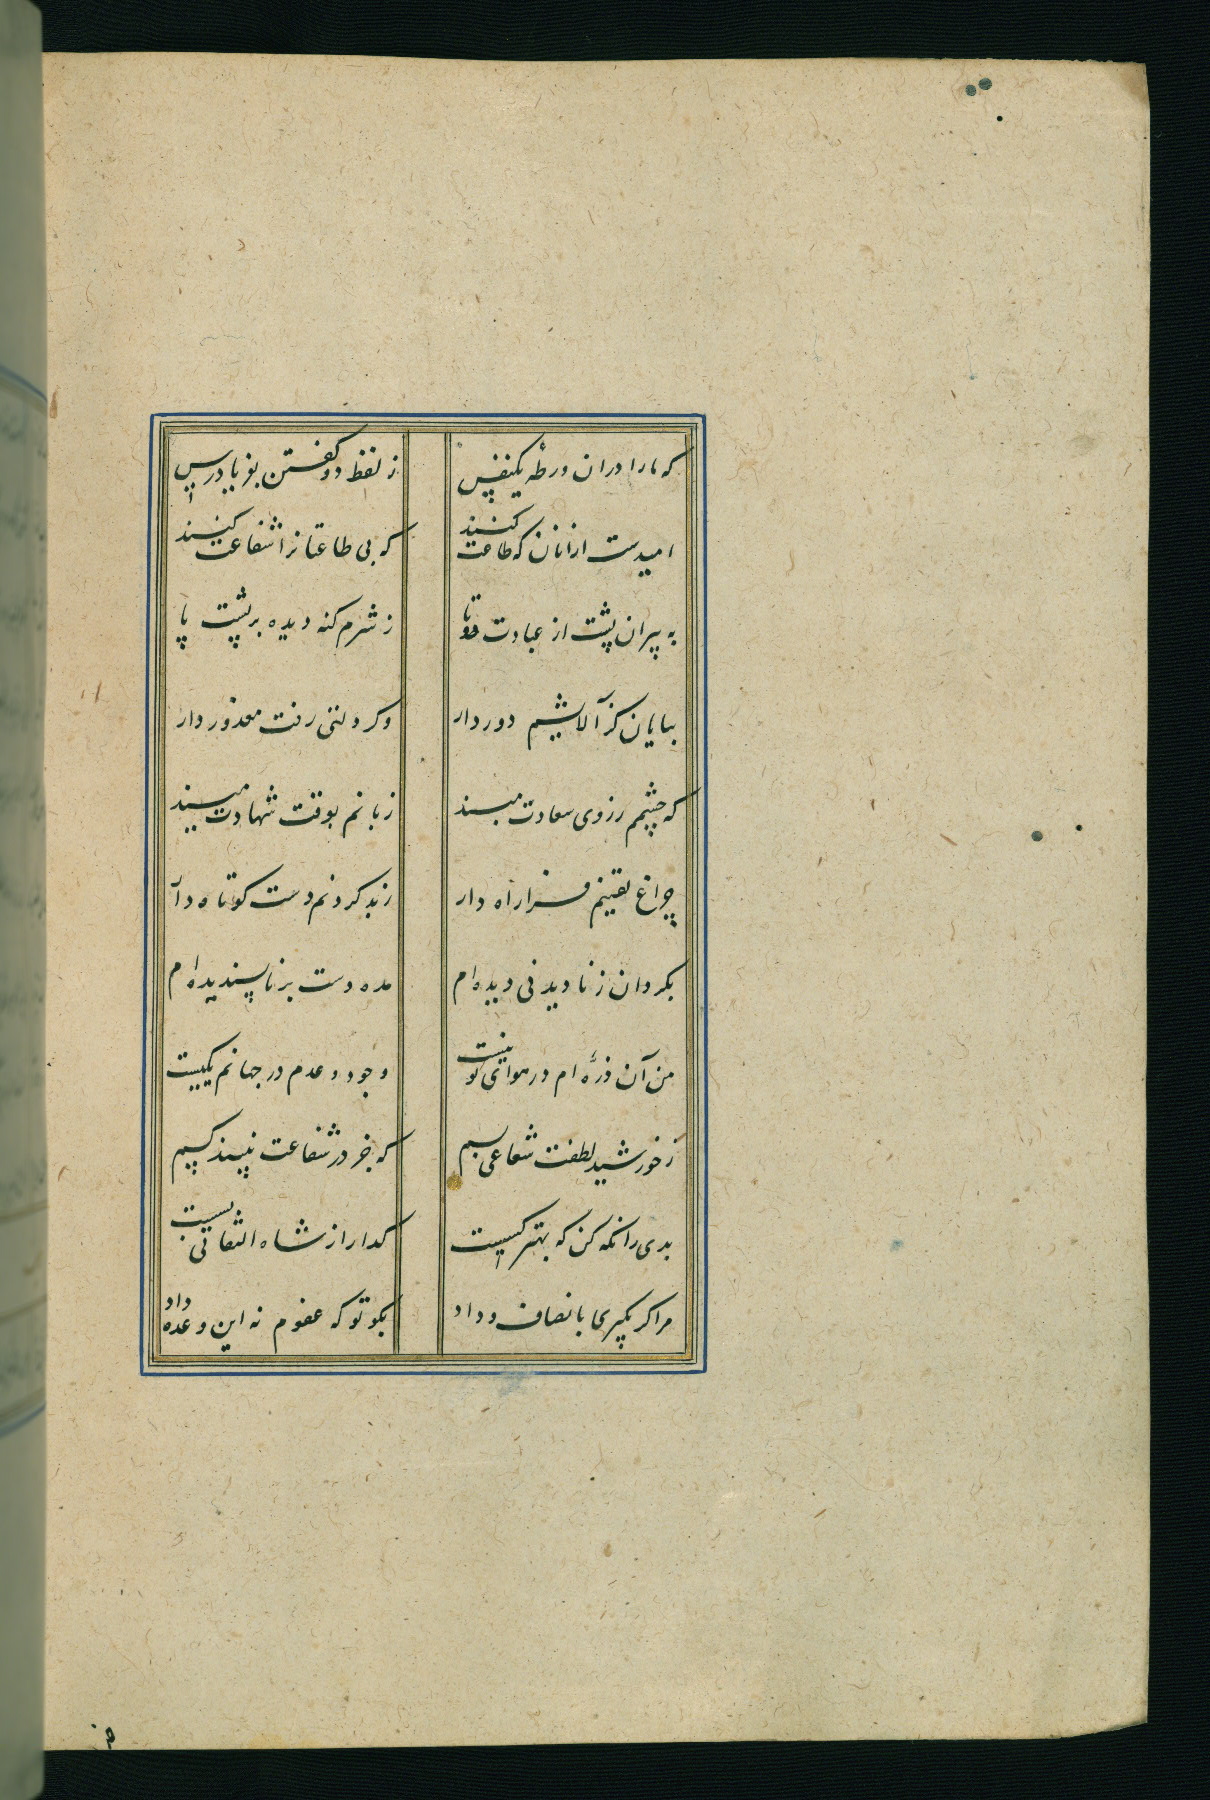 که ما را دران ورطهٔ یکنفس
ز لفظ دو گفتن بفریاد رس
امیدست ازانان که طاعت کنند
که بی طاعتانرا شفاعت کنند
به پیران پشت از عبادت دوتا
ز شرم کنه دیده بر پشت پا
بپاکان کز آلایشم دور دار
وکر دلتی رفت معذور دار
که چشمم ز روی سعادت مبند
زبانم بوقت شهادت مبند
چراغ یقینم فرا راه دار
ز بد کردنم دست کوتاه دار
بکردان ز نادیدنی دیده ام
مده دست بر ناپسندیده ام
من آن ذرّه ام در هوای تو نیست
وجود و عدم در جهانم یکیست
ز خورشید لطفت شعاعی بسم
که جز در شفاعت نبیند کسم
بدی را نکه کن که بهتر کسیست
کدا را از شاه التفاتی بسیت
مرا کر بکیری بانصاف و داد
بکو تو که عفوم نه این وعده داد